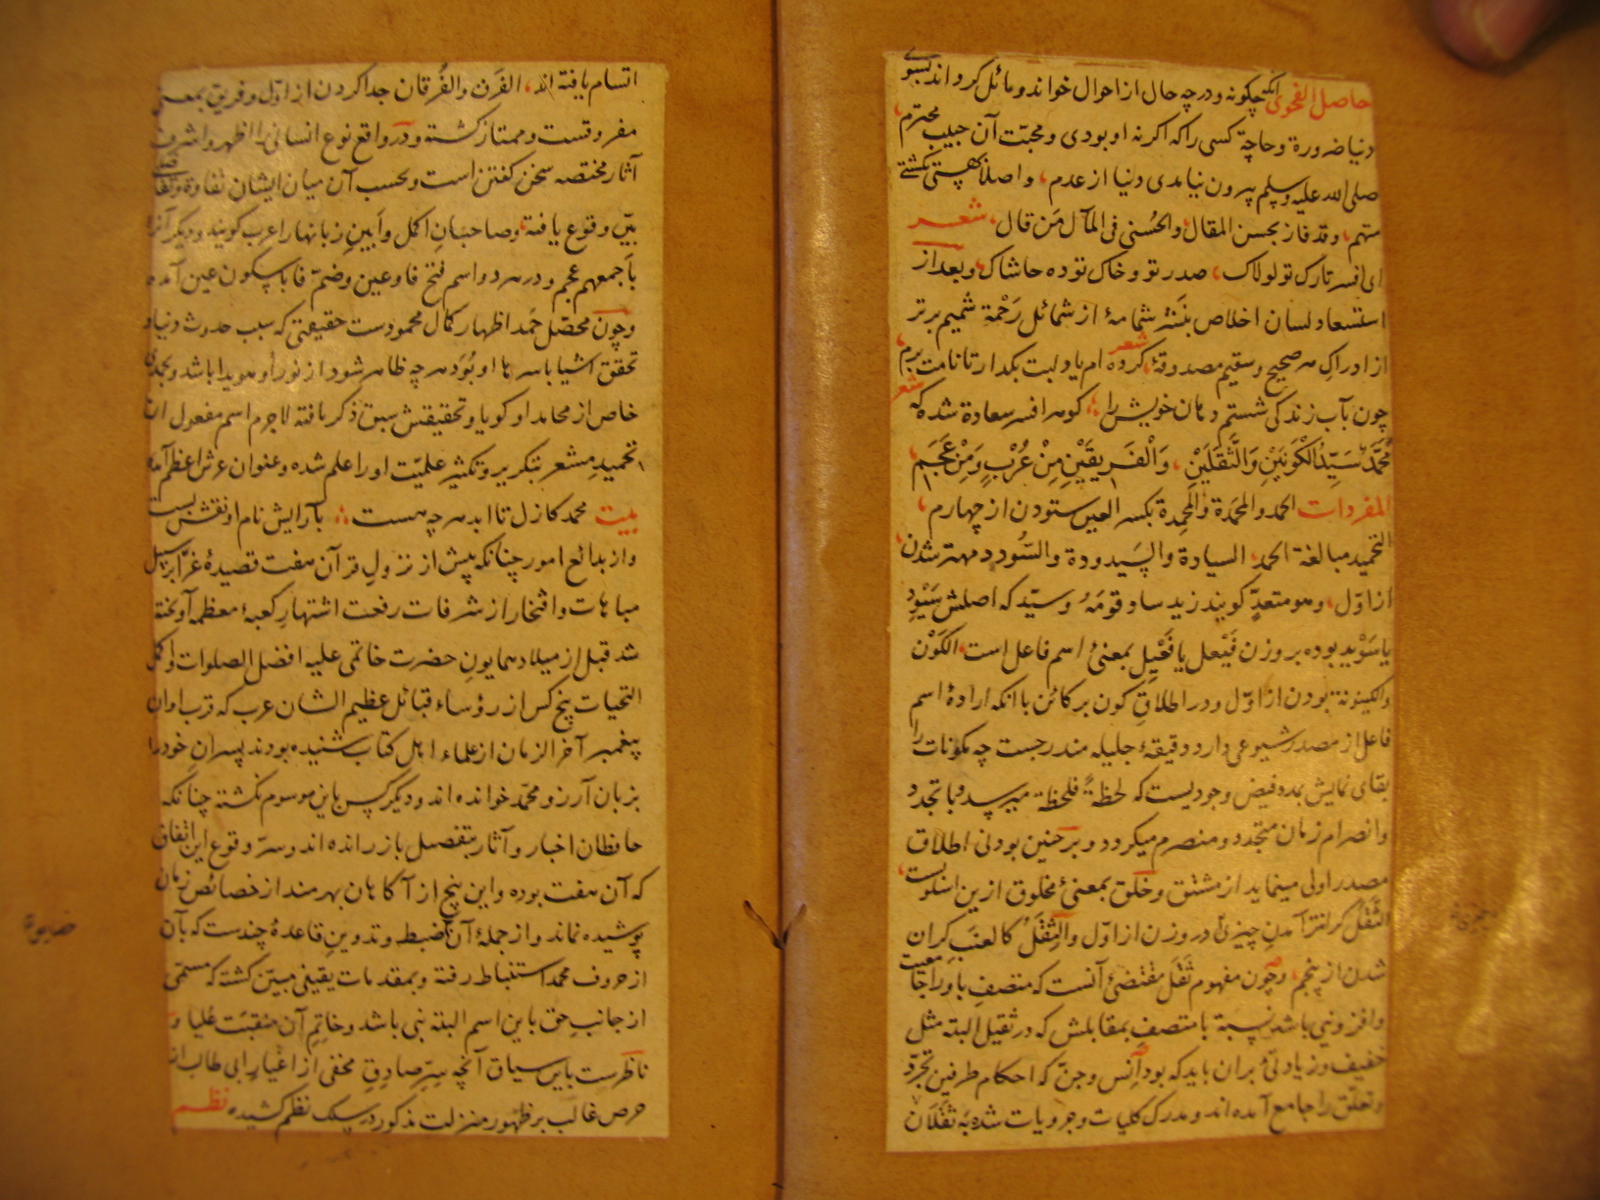 حاصل الفحوی آنکه چگونه و درچه حال از احوال خواند و مائل کرداند بسوی
دنیا ضرورة و حاجة کسی را که اکر نه او بودی و محبّت آن حبیب محترم
صلی الله علیه وسلم بیرون نیامدی دنیا از عدم، و اصلا بهستی نکشتی
متهم، وقد فاز بحسن المقال، والحسنی فی المآل مَن قال، شعر
ای افسر تارک تو لولاک، صدر تو و خاک توده حاشاک، وبعد از
استسعاد لسان اخلاص بنشر شمامهٔ از شمائل رَحْمة شمیم برتر
از ادراک هر صحیح و سقیم مصدوقهٔ، شعر کرده ام یاد لبت بکدار تا نامت برم،
چون بآب زندکی شستم دهان خویش را، کوهر افسر سعادة شده که شعر
مُحَمَّدٌ سَیِّدُ الْکَوْنَیْنِ وَالثَّقَلَیْنِ، وَالْفَرِیقَیْنِ مِنْ عُرْبٍ وَمِنْ عَجَمِ،
المفردات الحمد والمحمَدة والمحمِدة بکسر العین ستودن از چهارم،
التحمید مبالغة الحمد، السیادة والسَیدودة والسُّودد مهتر شدن
از اوّل، و هو متعدٍّ کویند زید ساد قومَهُ و سیّد که اصلش سَیْوِد
یا سَوْیِد بوده بر وزن فَیْعِل یا فَعْیِل بمعنیٔ اسم فاعل است، الکَوْن
والکینونة بودن از اوّل و در اطلاقِ کون بر کائن با آنکه ارادهٔ اسم
فاعل از مصدر شیوعی دارد دقیقهٔ جلیله مندرجست چه مکوّنات را
بقای نمایش بمده فیض وجودیست که لحظةً فلحظة میرسد و با تجدد
و انصرام زمان متجدد و منصرم میکردد و بر چنین بودنی اطلاق
مصدر اولی مینماید از مشتق و خلق بمعنیٔ مخلوق ازین اسلوبست،
الثَّقْل کرانتر آمدن چیزی در وزن از اوّل والثِّقَلُ کالعنَب کران
شدن از پنجم، و چون مفهوم ثقل مقتضیٔ آنست که متصفِ باو را جامعیت
و افزونی باشد نسبة با متصفِ بمقابلش که در ثقیل البته مثل
خفیف و زیادتیٔ بران باید که بود اِنس و جنّ که احکام طرفین تجرّد
و تعلّق را جامع آمده اند و مدرک کلیات و جزویات شده به ثقلان
اتسام یافته اند، الفَرْق والفُرْقان جدا کردن از اوّل و فریق بمعنی
مفروقست و ممتاز کشته و در واقع نوع انسانی را اظهر و اشرف
آثار مختصه سخن کفتن است و بحسب آن میان ایشان تفاوة و تفاضلی
بیّن وقوع یافته، و صاحبان اکمل و ابینِ زبانها را عرب کویند و دیکر آنرا
باَجمعهم عجم و در هر دو اسم فتح فا و عین و ضمّ فا با سکون عین آمده
و چون محصّل حَمد اظهار کمال محمودست حقیقتی که سبب حدوث دنیا و
تحقق اشیا باسرها او بُوَد هر چه ظاهر شود از نور او هویدا باشد و بحمدی
خاص از محامد او کویا و تحقیقش سبق ذکر یافته لاجرم اسم مفعول از
تحمید مشعر بتکریر و تکثیر علمیّت او را علم شده و عنوان عرش اعظم آمده
بیت محمد کازل تا ابد هر چه هست، بآرایش نام او نقش بست
و از بدائع امور چنانکه پیش از نزول قرآن هفت قصیدهٔ غرّا بر سبیل
مباهات و افتخار از شرفات رفعت اشتهارِ کعبهٔ معظمه آویخته
شد قبل از میلاد همایون حضرت خاتمی علیه افضل الصلوات و اکمل
التحیات پنج کس از رؤساء قبائل عظیم الشان عرب که قرب اوان
پیغمبر آخر الزمان از علماء اهل کتاب شنیده بودند پسران خود را
بزبان آرزو محمّد خوانده اند و دیکر کس باین موسوم نکشته چنانکه
حافظان اخبار و آثار بتفصیل باز رانده اند و سرّ وقوع این اتفاق
که آن هفت بوده و این پنج از آکاهان بهرمند از خصائص زمان
پوشیده نماند و از جملهٔ آن ضبط و تدوینِ قاعدهٔ چندست که بآن
از حروف محمد استنباط رفته و بمقدمات یقینی مبیّن کشته که مسمّی
از جانب حق باین اسم البته نبی باشد و خاتِم آن منقبَت علیا و
ناظرست باین سیاق آنچه سِرّ صادق مخفی از اغیار ابی طالب از
حرص غالب بر ظهور منزلت مذکور در سلک نظم کشیده، نظم